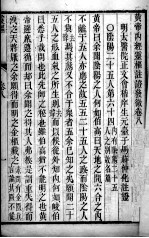 黃帝內經靈樞註證發微卷八
明太醫院正文會稽庠生玄臺子馬蒔仲化註證
陰陽二十五人第六十四
黃帝曰余聞陰陽之人何如伯高曰天地之間六合之內
不離於五人亦應之故五五二十五人之政而陰陽之人
不與焉其態又不合於眾者五余已知之矣願聞二十五
人之形血氣之所生別而以候從外知內何如岐伯
曰悉乎哉問也此先師之秘也雖伯高猶不能明之也黃
帝避席遵循而卻曰余聞之得其人弗教是謂重失得而
洩之天將厭之余願得而明之金櫃藏之